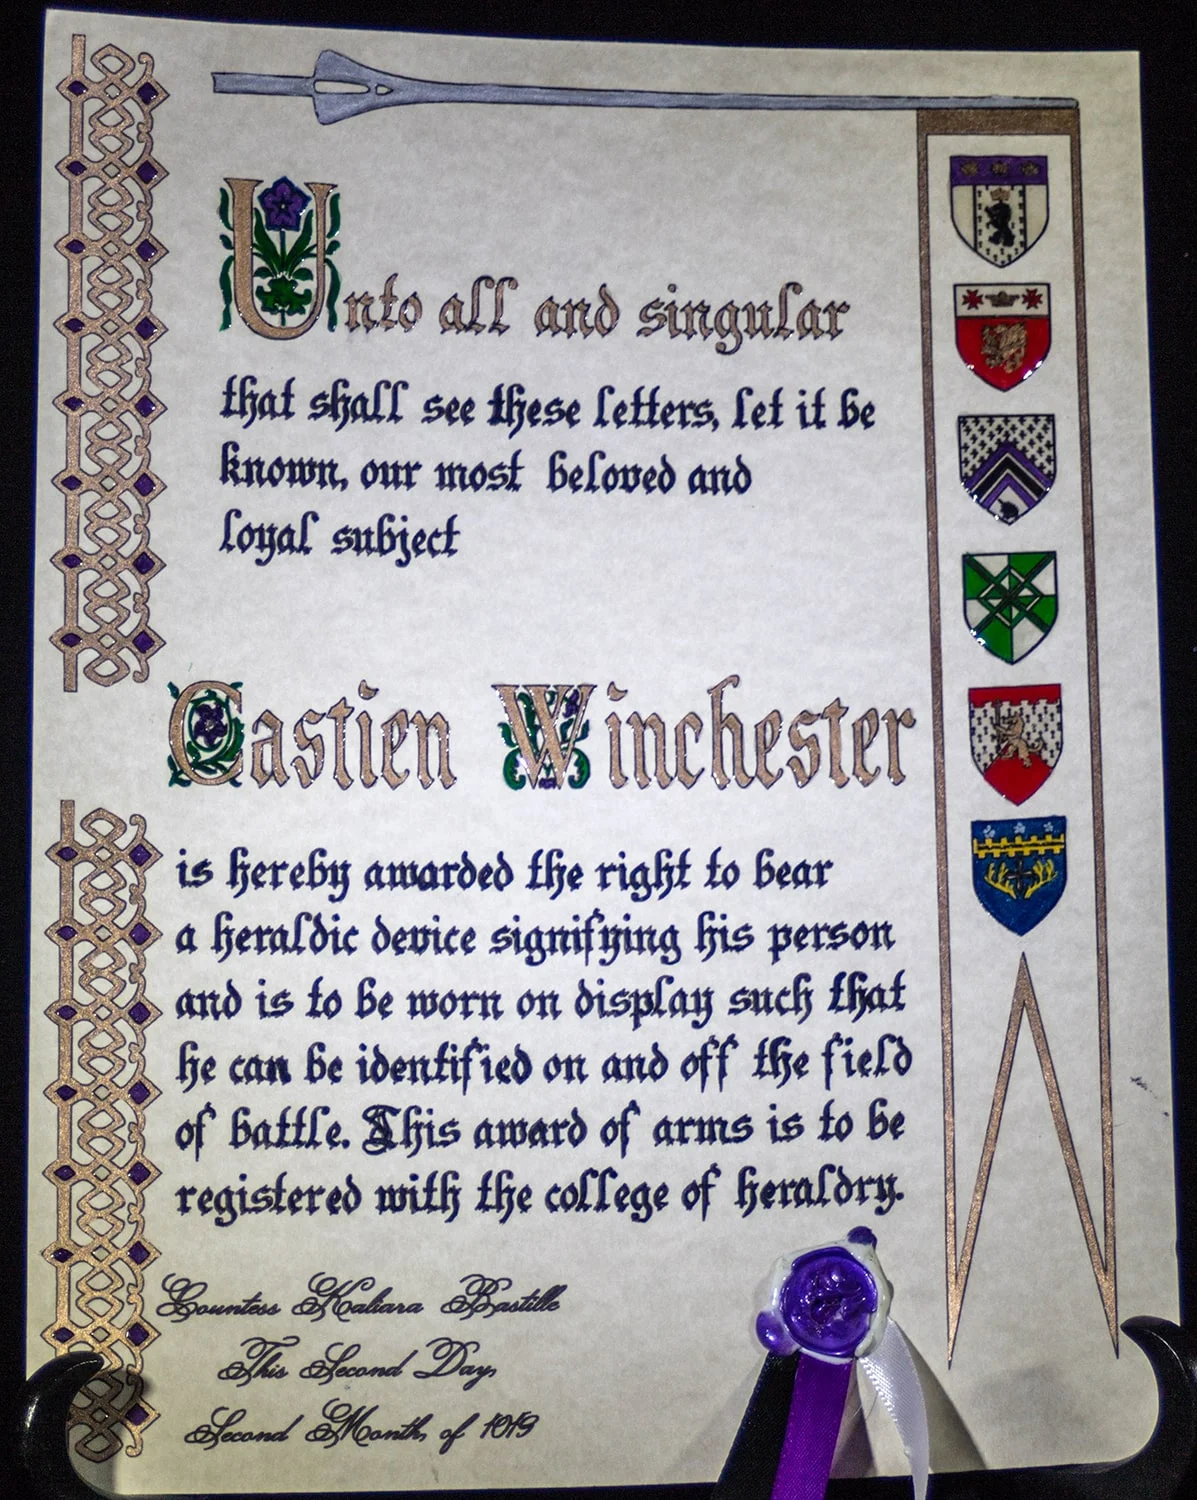 Unto all and singular
that shall see these letters, let it be
known, our most beloved and
loyal subject
Castien Winchester
is hereby awarded the right to bear
a heraldic device signifying his person
and is to be worn on display such that
he can be identified on and off the field
of battle. This award of arms is to be
registered with the college of heraldry.
Countess Kaliara Bastille
This Second Day,
Second Month, of 1019